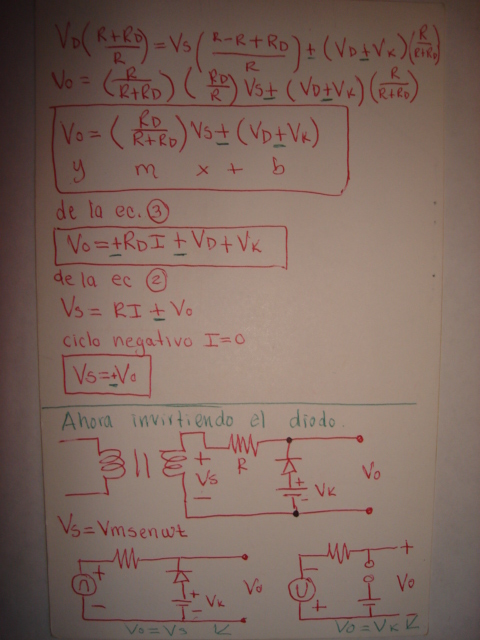 VD(R+RD/R) = VS(R-R+RD/R) ± (VD+VK)(R/R+RD)
VO = (R/R+RD)(RD/R) VS ± (VD+VK)(R/R+RD)
VO = (RD/R+RD)VS ± (VD+VK)
y m x + b
de la ec. ③
VO = ±RDI ± VD + VK
de la ec ②
VS = RI ± VO
ciclo negativo I=0
VS = ±VO
Ahora invirtiendo el diodo.
+ VS - R + - VK VO
VS = Vmsenwt
+ - + - VK VO
- + + VO
VO = VS
VO = VK